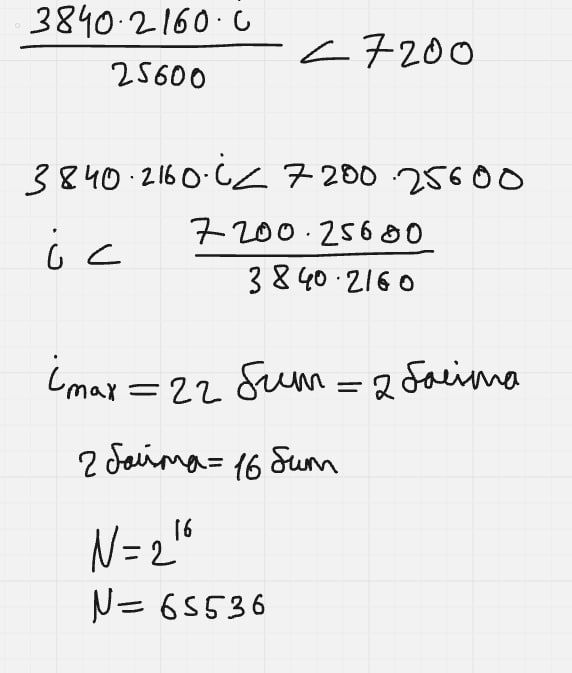 3840·2160·i
25600
< 7200
3840·2160·i < 7200·25600
i <
7200·25600
3840·2160
i max = 22 бит = 2 байта
2 байта = 16 бит
N = 2¹⁶
N = 65536